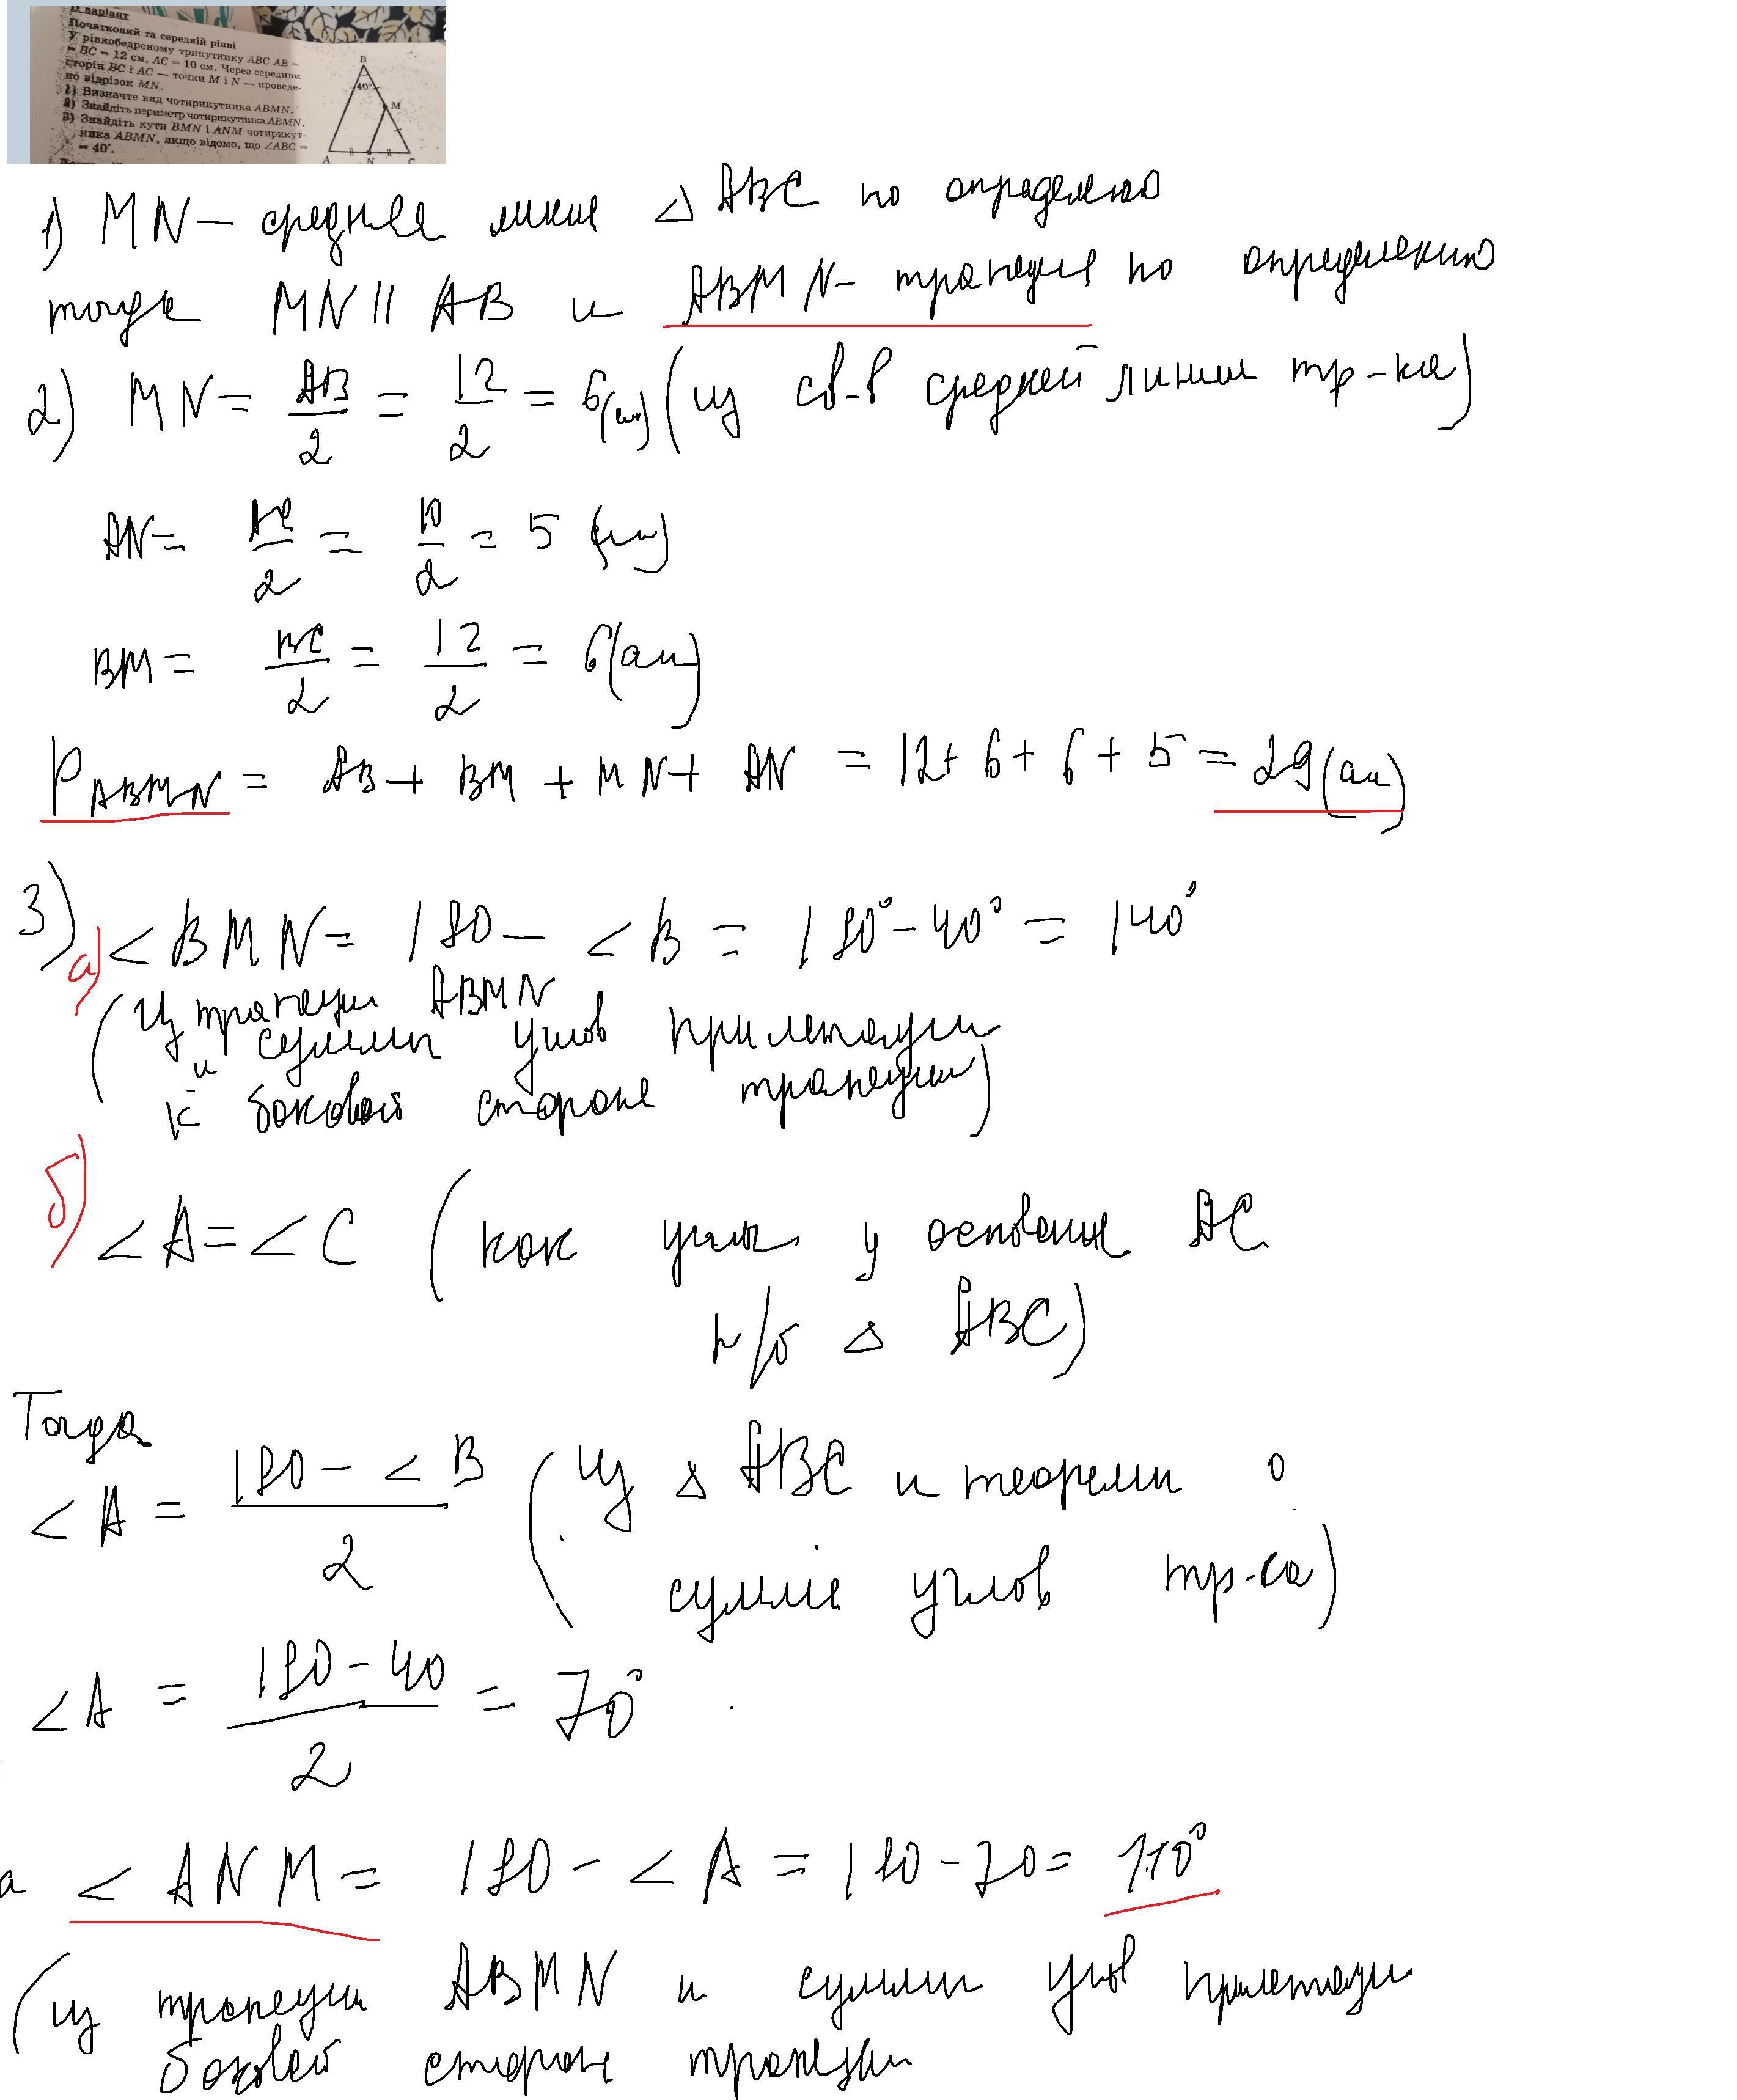 II варіант
Початковий та середній рівні
У рівнобедреному трикутнику ABC AB =
= BC = 12 см, AC = 10 см. Через середини
сторін BC і AC — точки M і N — проведе-
но відрізок MN.
1) Визначте вид чотирикутника ABMN.
2) Знайдіть периметр чотирикутника ABMN.
3) Знайдіть кути BMN і ANM чотирикут-
ника ABMN, якщо відомо, що ∠ABC =
= 40°.
B
40°
M
A
N
C
1) MN – средняя линия △ ABC по определению
тогда MN || AB и ABMN – трапеция по определению
2) MN = AB/2 = 12/2 = 6(см) (из св-в средней линии тр-ка)
AN = AC/2 = 10/2 = 5 (см)
BM = BC/2 = 12/2 = 6(см)
P ABMN = AB + BM + MN + AN = 12 + 6 + 6 + 5 = 29(см)
3) а) < BMN = 180 – < B = 180° – 40° = 140°
(из трапеции ABMN
и суммы углов прилежащих
к боковой стороне трапеции)
б) < A = < C (как углы у основания AC
р/б △ ABC)
Тогда
< A = 180 – < B / 2 (из △ ABC и теоремы о
сумме углов тр-ка)
< A = 180 – 40 / 2 = 70°
а < ANM = 180 – < A = 180 – 70 = 110°
(из трапеции ABMN и суммы углов прилежащих
боковой стороне трапеции